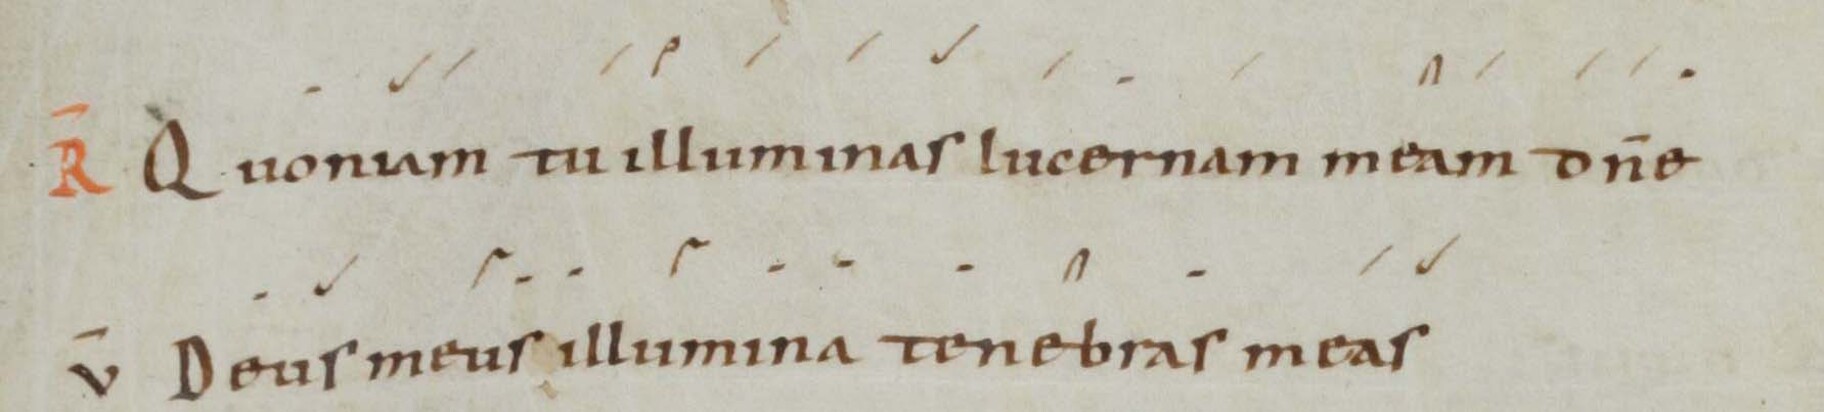 R̄ Quoniam tu illuminas lucernam meam dn̄e
v̄ Deus meus illumina tenebras meas